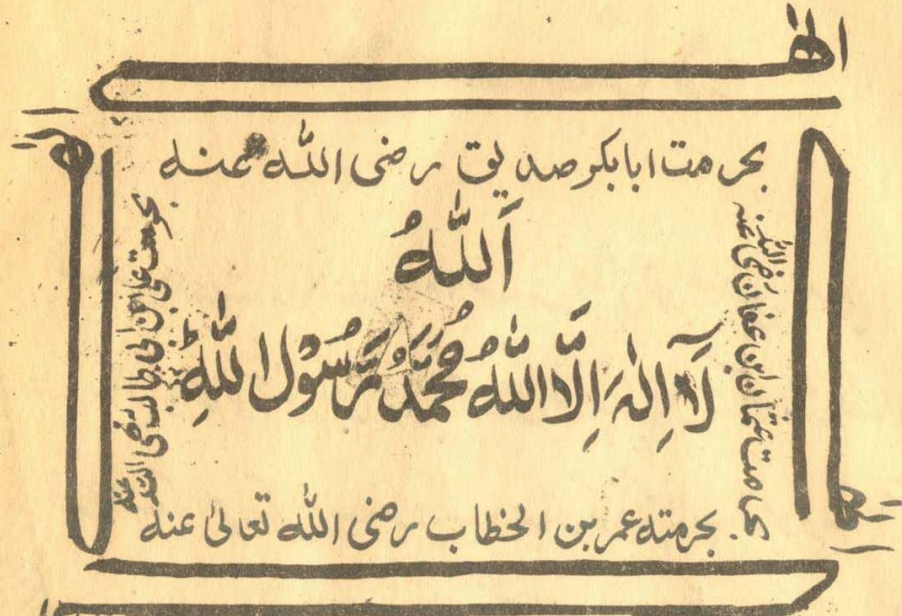 الٰہی
بحرمت ابابکر صدیق رضی اللہ عنہ
اَللّٰهُ
لَآ اِلٰہَ اِلَّا اللّٰهُ مُحَمَّدٌ رَّسُوْلُ اللّٰهِ
بحرمتہ عمر بن الخطاب رضی اللہ تعالیٰ عنہ
بحرمت عثمان ابن عفان رضی اللہ عنہ
بحرمت علی بن ابی طالب رضی اللہ عنہ
الٰہی
الٰہی